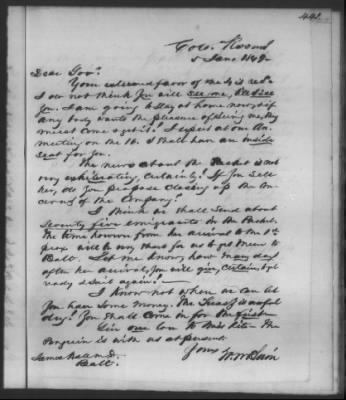 441.
Colo. Rooms
5 Jany 1849-
Dear Gov.
Your esteemed favor of the 4 is recd.
I do not think I'll see me,
you. I am going to stay at home now, & if
any body wants the pleasure of seeing me, they
must come & get it! I expect at our An.
meeting on the 16. I shall have an inside
seat for you.
The news about the Packet is not
very exhilerating, certainly! If you sell
her, do you propose closing up the con
cerns of the Company?
I think we shall send about
Seventy five emigrants in the Packet.
The time however from her arrival to the 1st
prox will be very short for us to get them to
Balt. Let me know, how many days
after her arrival, you will give, certain, to get
ready & sail again?
I know not when we can let
you have some money. The Treasy is awful
dry! You shall come in for the first
Give one love to Miss Kite. The
Penguin is with us at present.
Yours
W. McLain
James Hall M.D.
Balt.